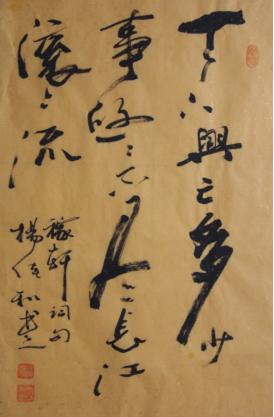 千古興亡多少
事悠々不盡長江
滾々流
稼軒詞句
楊和書